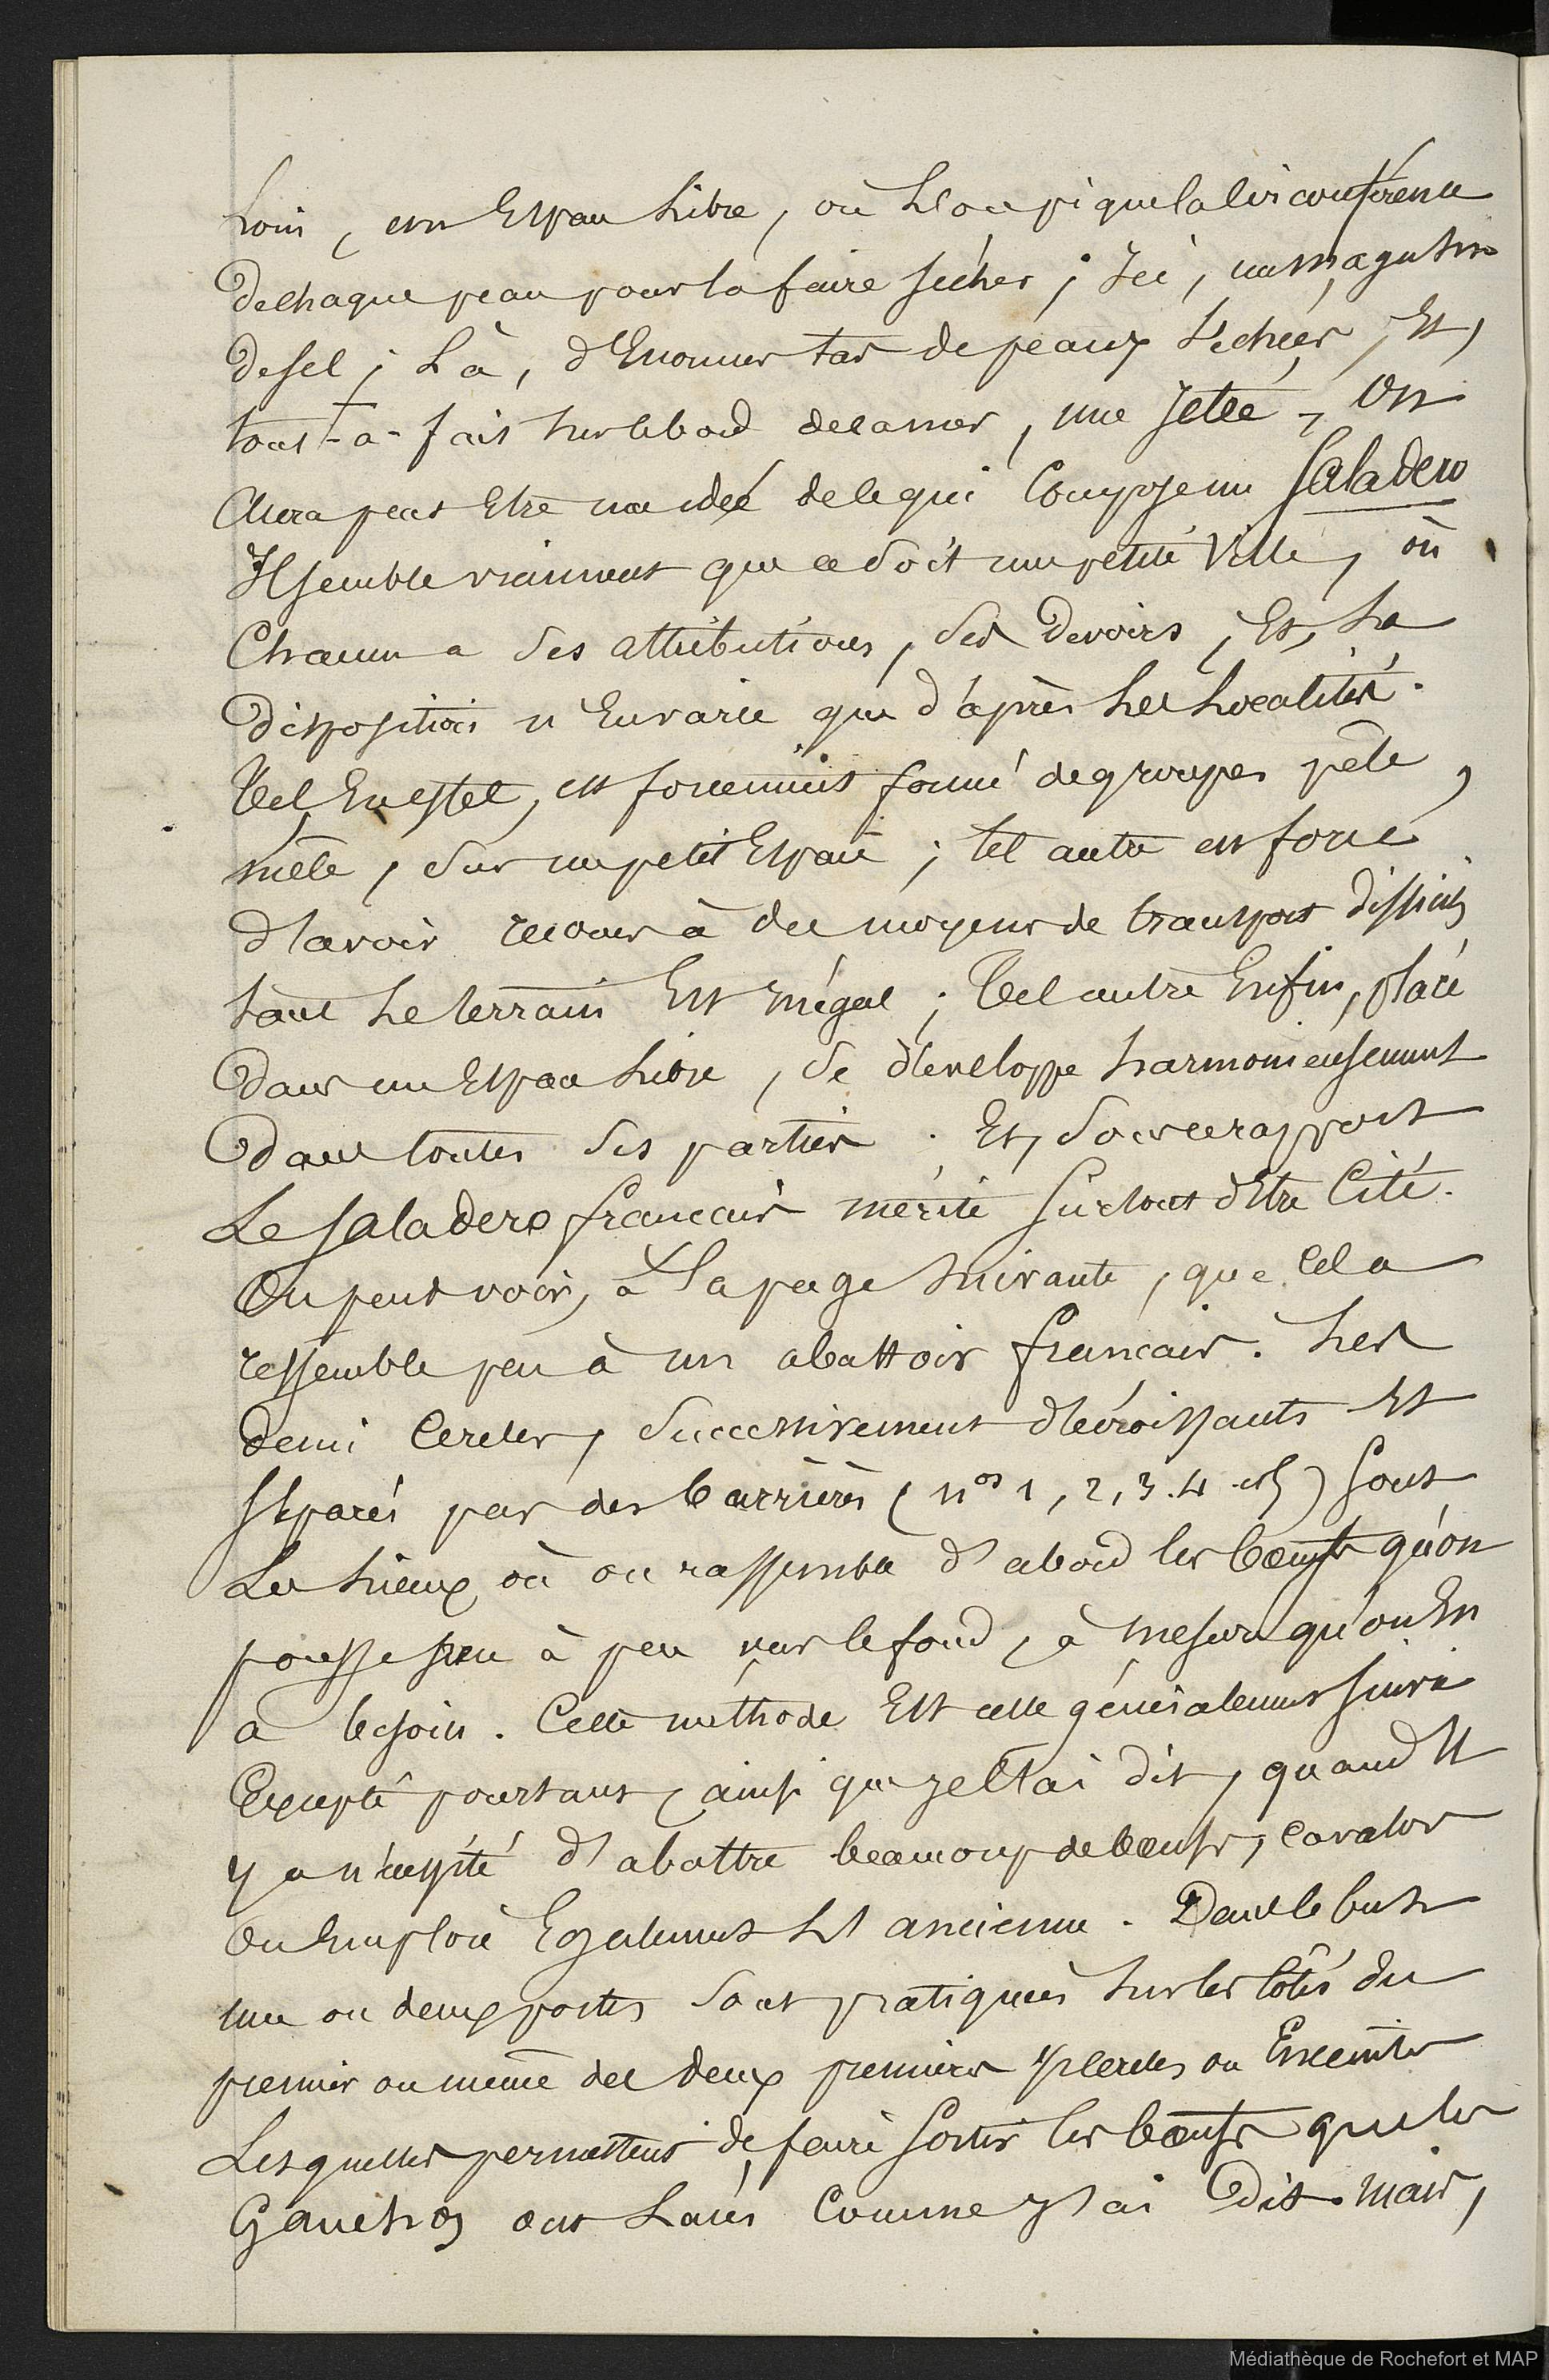 Loin, un Espace Libre, où L'on pique la circonférence
de chaque peau pour la faire sécher ; Ici, un magasin
de sel ; Là, d'Enormes tas de peaux séchées ; Et,
tout-à-fait sur le bord de la mer, une Jetée, On
Aura peut Etre une idée de ce qui Compose un Saladero
Il semble vraiment que ce soit une petite Ville, où
Chacun a ses attributions, ses Devoirs ; Et, La
Disposition n'En varie que d'après Les Localités.
Tel En effet, est forcément formé de groupes pêle
mêle, sur un petit Espace ; tel autre est forcé
d'avoir recours à des moyens de transport difficiles
tant Le terrain Est inégal ; Tel autre Enfin, placé
Dans un Espace Libre, se développe harmonieusement
Dans toutes ses parties. Et, sous ce rapport
Le Saladero français mérite surtout d'Etre Cité.
On peut voir, à La page suivante, que Cela
ressemble peu à un abattoir français. Les
demi Cercles, successivement décroissants Et
séparés par des barrières (nos 1, 2, 3. 4 et 5) sont
Les Lieux où on rassemble d'abord les bœufs qu'on
pousse peu à peu vers le fond, à mesure qu'on En
a besoin. Cette méthode Est celle généralement suivie
Excepté pourtant, ainsi que je l'ai dit, quand Il
y a nécessité d'abattre beaucoup de bœufs, car alors
On Emploie Egalement L'ancienne. Dans le but
une ou deux portes sont pratiquées sur les côtés du
premier ou même des deux premiers Cercles ou Enceintes
Lesquelles permettent de faire sortir les bœufs que les
Gauchos ont Lacés Comme j'ai Dit. Mais,
Médiathèque de Rochefort et MAP